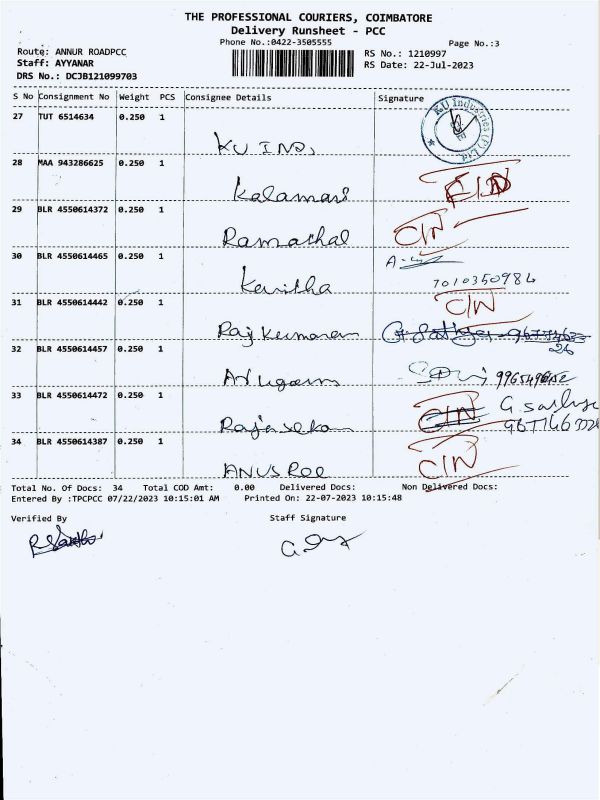 THE PROFESSIONAL COURIERS, COIMBATORE
Delivery Runsheet - PCC
Phone No.:0422-3505555
Page No.:3
Route: ANNUR ROADPCC
RS No.: 1210997
Staff: AYYANAR
RS Date: 22-Jul-2023
DRS No.: DCJB121099703
S No Consignment No Weight PCS Consignee Details Signature
27 TUT 6514634 0.250 1
KU Industries (P) Ltd.
KU IND,
28 MAA 943286625 0.250 1
Kalamani
29 BLR 4550614372 0.250 1
C/N
Ramathal
30 BLR 4550614465 0.250 1
Kavitha
7010350986
31 BLR 4550614442 0.250 1
C/N
Raj Kumaran
32 BLR 4550614457 0.250 1
26
33 BLR 4550614472 0.250 1
C/N
Rajasekar
34 BLR 4550614387 0.250 1
C/N
Total No. Of Docs: 34 Total COD Amt: 0.00 Delivered Docs: Non Delivered Docs:
Entered By :TPCPCC 07/22/2023 10:15:01 AM Printed On: 22-07-2023 10:15:48
Verified By Staff Signature